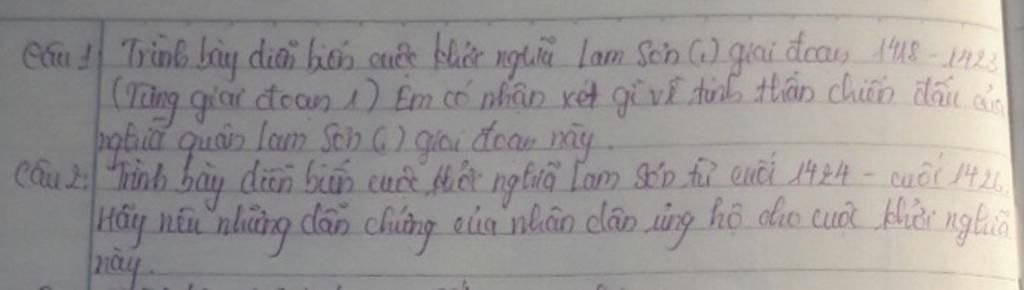 Câu 1 Trình bày diễn biến cuộc khởi nghĩa Lam Sơn (.) giai đoạn 1418 - 1423
(Từng giai đoạn 1) Em có nhận xét gì về tinh thần chiến đấu của
nghĩa quân Lam Sơn (.) giai đoạn này.
Câu 2: Trình bày diễn biến cuộc khởi nghĩa Lam Sơn từ cuối 1424 - cuối 1426.
Hãy nêu những dẫn chứng của nhân dân ủng hộ cho cuộc khởi nghĩa
này.